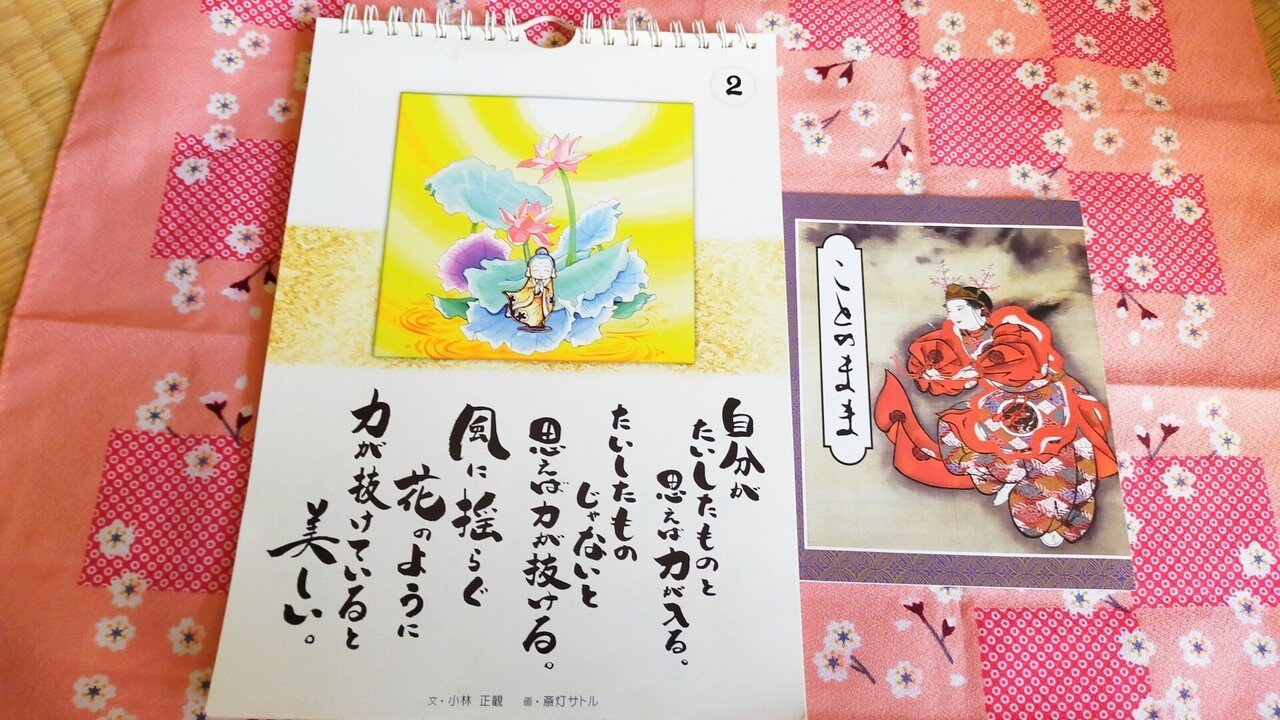 2
自分が
たいしたものと
思えば力が入る。
たいしたもの
じゃないと
思えば力が抜ける。
風に揺らぐ
花のように
力が抜けていると
美しい。
文・小林 正観 画・斎灯サトル
ことのまま